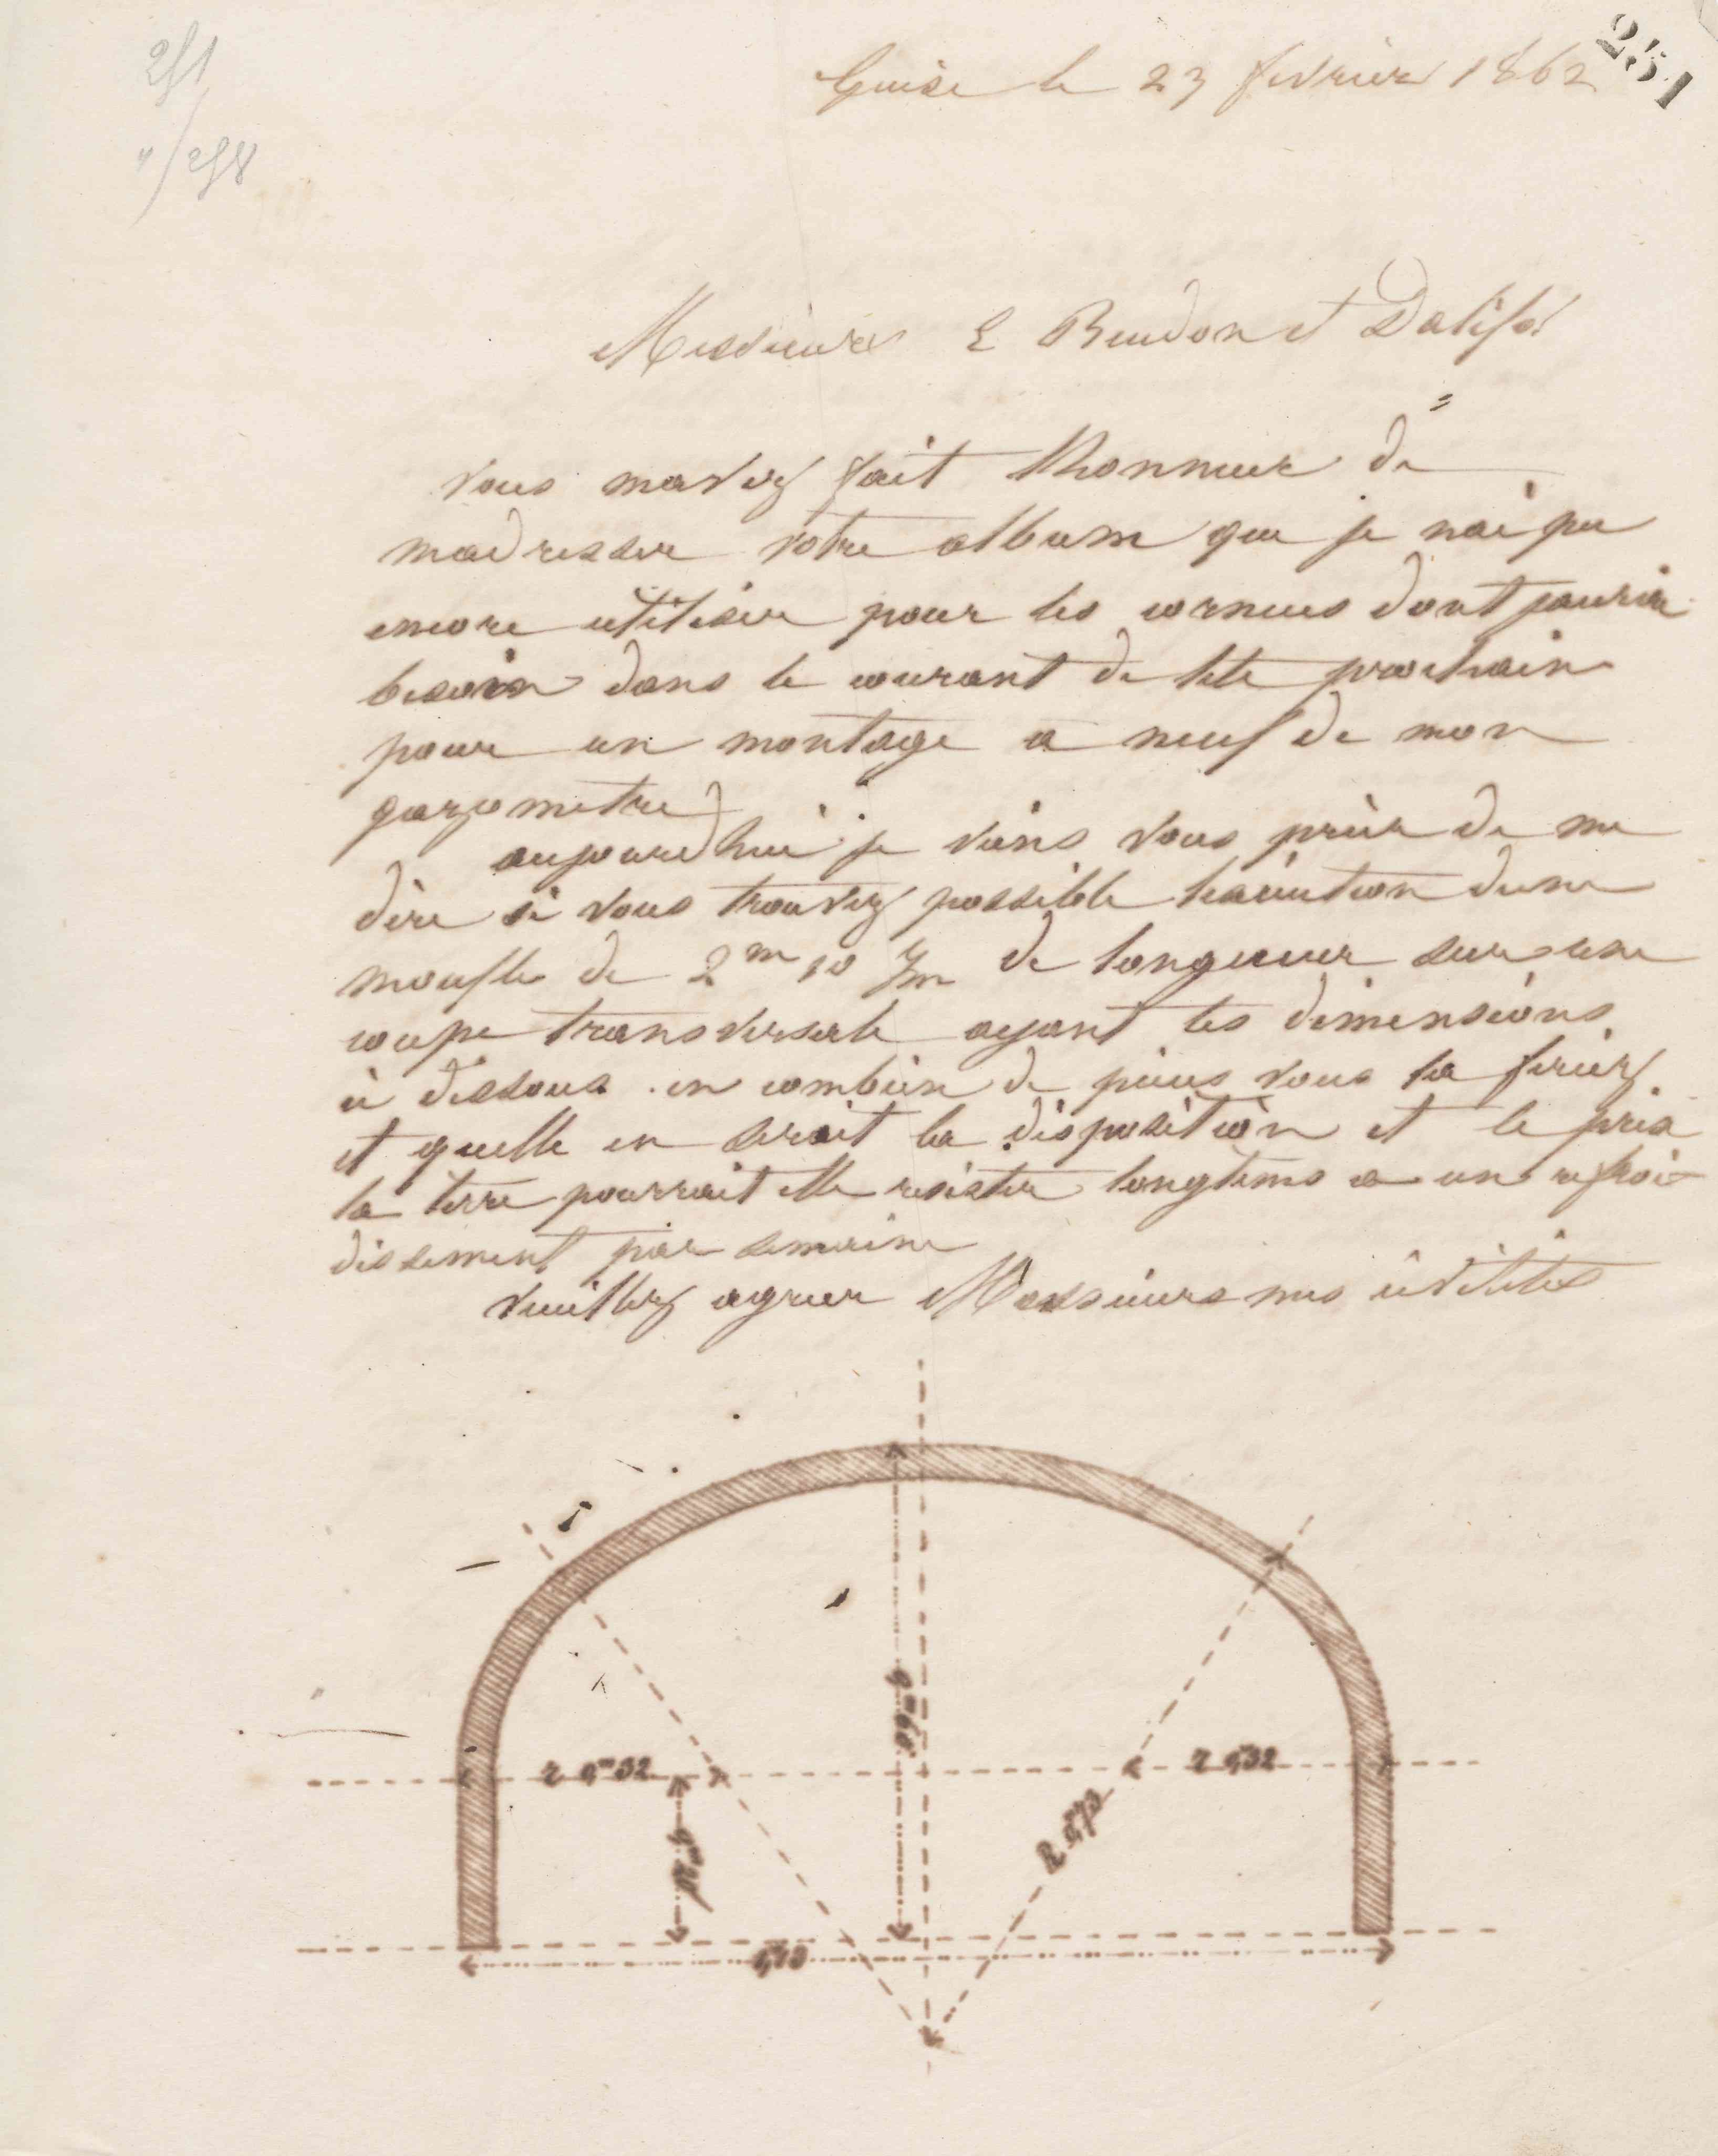 251
251
"/258
Guise le 23 fevrier 1862
Messieurs E Beudon et Dalifol
vous mavez fait lhonneur de
madresser votre album que je nai pu
encore utiliser pour les cornues dont jaurai
besoin dans le courant de lété prochain
pour un montage a neuf de mon
gazometre
aujourdhui je viens vous prier de me
dire si vous trouvez possible lexécution dune
moufle de 2m 10 c/m de longueur sur une
coupe transversale ayant les dimensions
ci dessous en combien de pieces vous la feriez
et quelle en serait la disposition et le prix
la terre pourrait elle resister longtems a un refroi-
dissement par semaine
Veuillez agreer Messieurs mes civilités
0m60
r 0m32
r 0,32
R 0,73
0m20
1,10